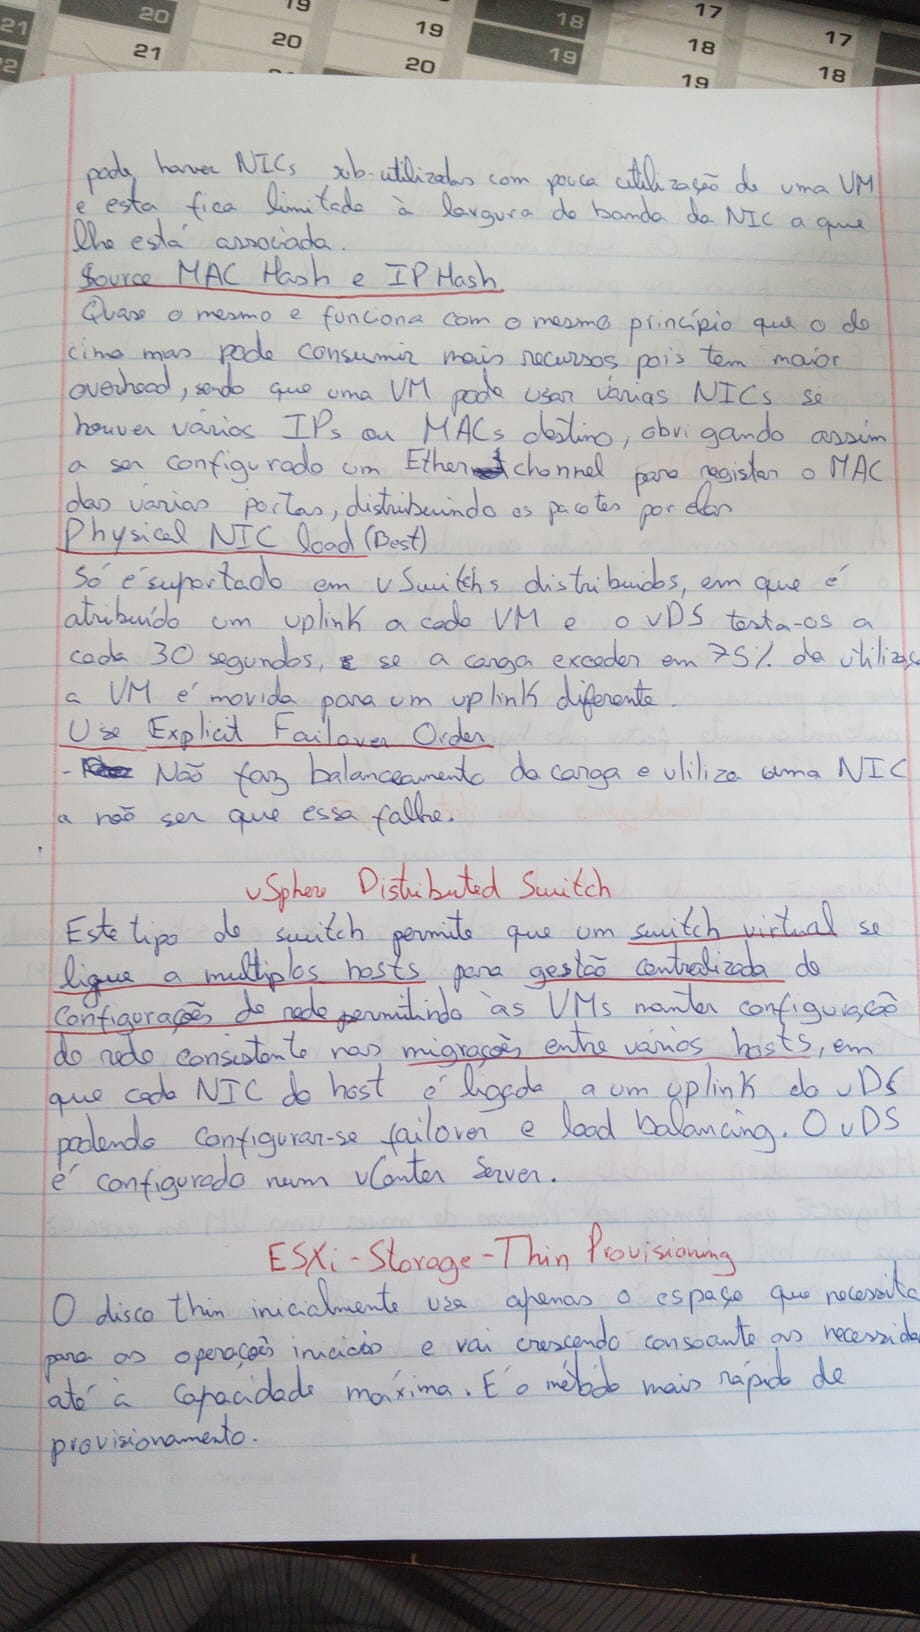 20 19 19 18 17 17
21 21 20 19 18
22 20 19 18
pode haver NICs sub-utilizadas com pouca utilização de uma VM
e esta fica limitada à largura de banda da NIC a que
lhe está associada.
Source MAC Hash e IP Hash
Quase o mesmo e funciona com o mesmo princípio que o de
cima mas pode consumir mais recursos pois tem maior
overhead, sendo que uma VM pode usar várias NICs se
houver vários IPs ou MACs destino, obrigando assim
a ser configurado um Etherchannel para registar o MAC
das várias portas, distribuindo os pacotes por elas
Physical NIC load (Best)
Só é suportado em vSwitchs distribuidos, em que é
atribuído um uplink a cada VM e o vDS testa-os a
cada 30 segundos, se a carga exceder em 75% da utilizaç
a VM é movida para um uplink diferente.
Use Explicit Failover Order
- Não faz balanceamento da carga e utiliza uma NIC
a não ser que essa falhe.
vSphere Distributed Switch
Este tipo de switch permite que um switch virtual se
ligue a multiplos hosts para gestão centralizada de
configurações de rede permitindo às VMs manter configuração
de rede consistente nas migrações entre vários hosts, em
que cada NIC do host é ligada a um uplink do vDS
podendo configurar-se failover e load balancing. O vDS
é configurado num vCenter Server.
ESXi-Storage-Thin Provisioning
O disco thin inicialmente usa apenas o espaço que necessita
para as operações iniciais e vai crescendo consoante as necessida
até à capacidade máxima. É o método mais rápido de
provisionamento.